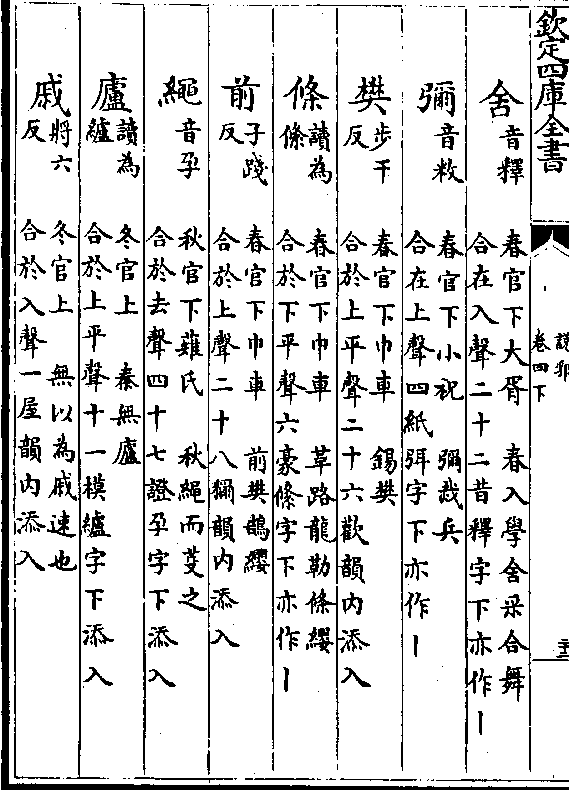 欽定四庫全書
卷四下
舍
音釋
春官下大胥 春入學舍采合舞
合在入聲二十二昔釋字下亦作丨
彌
音敉
春官下小祝 彌烖兵
合在上聲四紙弭字下亦作丨
樊
步干
反
春官下巾車 錫樊
合於上平聲二十六歡韻内添入
條
讀為
絛
春官下巾車 革路龍勒條纓
合於下平聲六豪絛字下亦作丨
前
子踐
反
春官下巾車 前樊鵠纓
合於上聲二十八獮韻内添入
繩
音孕
秋官下薙氏 秋繩而芟之
合於去聲四十七證孕字下添入
廬
讀為
纑
冬官上 秦無廬
合於上平聲十一模纑字下添入
戚
將六
反
冬官上 無以為戚速也
合於入聲一屋韻内添入